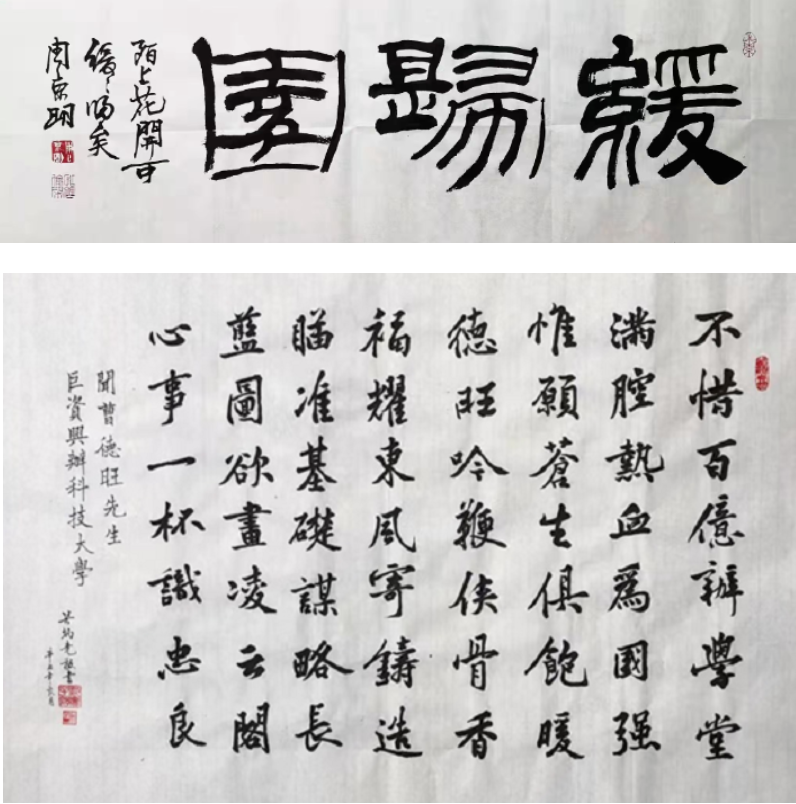 緩歸園
陌上花開可
緩〻歸矣
不惜百億辦學堂
滿腔熱血爲國强
惟願蒼生俱飽暖
德旺吟鞭俠骨香
福耀東風寄鑄造
瞄准基礎謀略長
藍圖欲畫凌云閣
心事一杯識忠良
聞曹德旺先生
巨資興辦科技大學